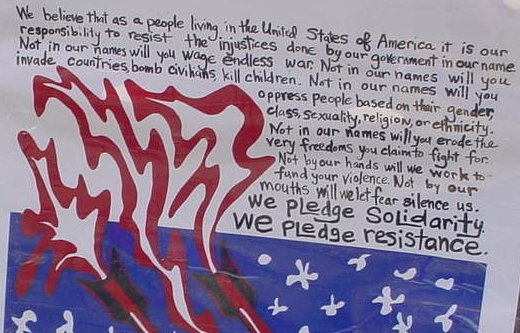 We believe that as a people living in the United States of America it is our
responsibility to resist the injustices done by our government in our name
Not in our names will you wage endless war. Not in our names will you
invade countries, bomb civilians, kill children. Not in our names will you
oppress people based on their gender,
class, sexuality, religion, or ethnicity.
Not in our names will you erode the
very freedoms you claim to fight for.
Not by our hands will we work to
fund your violence. Not by our
mouths will we let fear silence us.
We pledge Solidarity.
We pledge resistance.